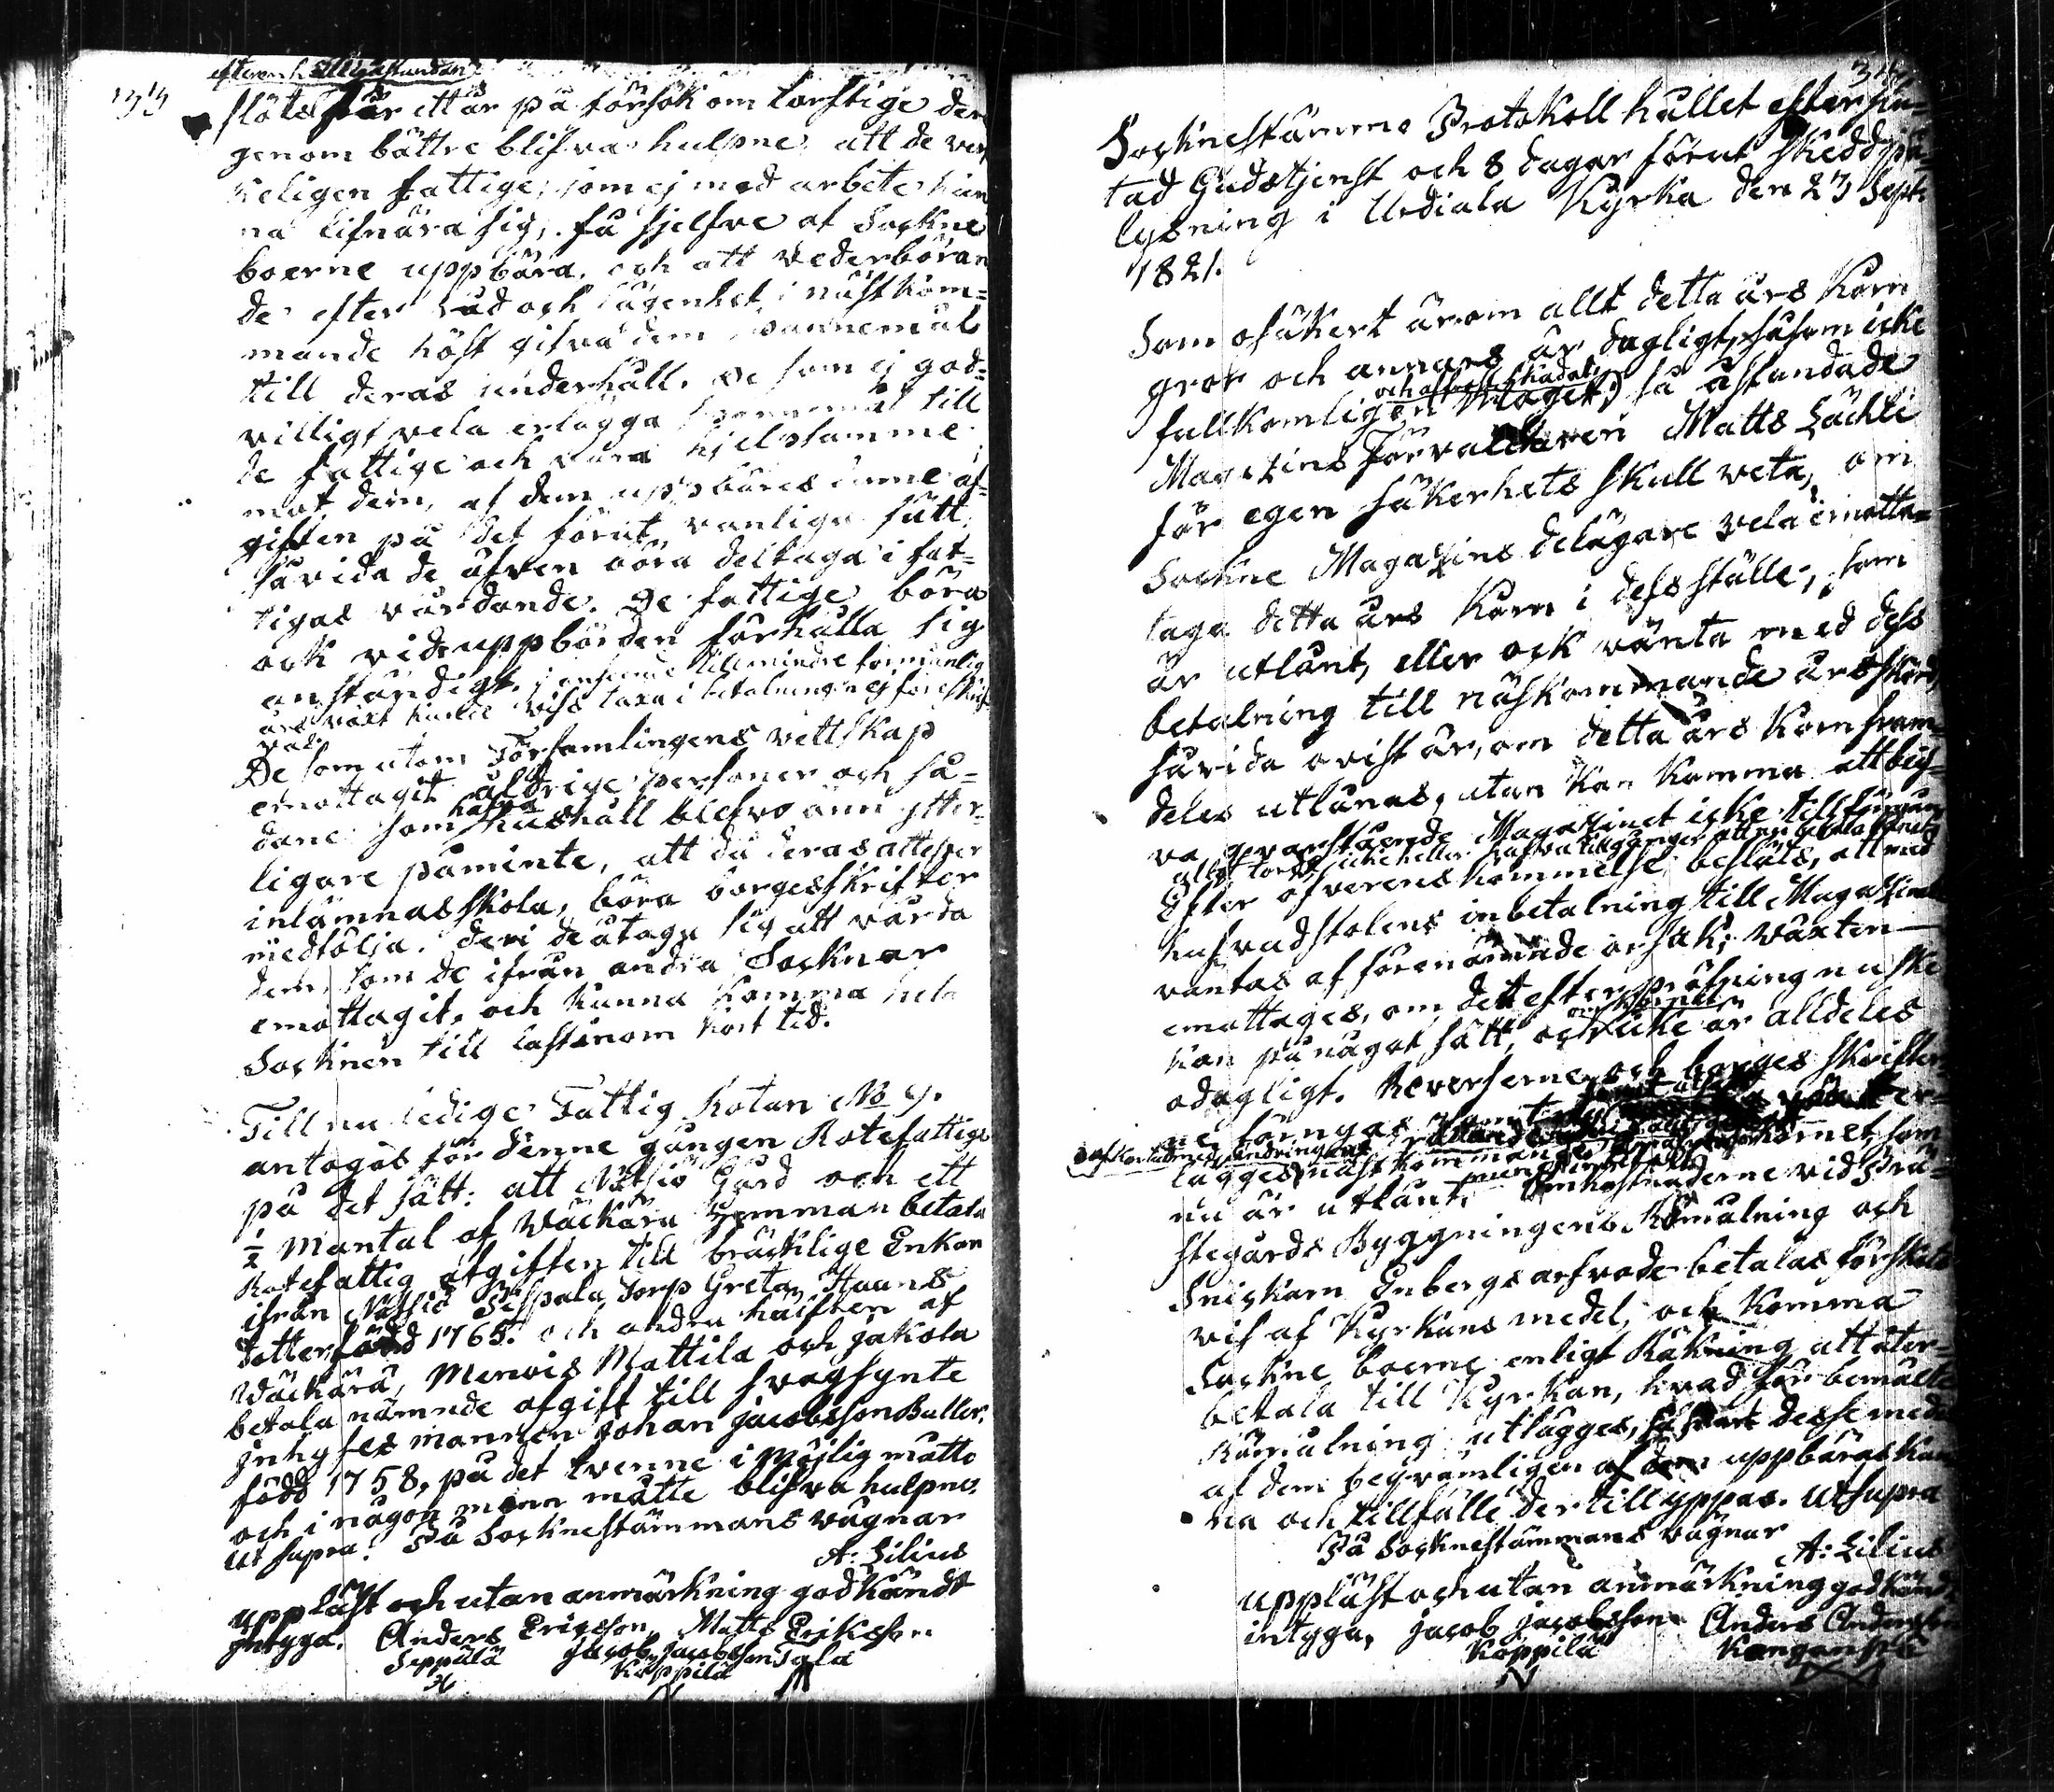 slöts för ett år på försök om torftige der
genom bättre blifva hulpne, att de ver
keligen fattige, som ej med arbete kun
na lifnära sig, få sjelfve af Sockne
boerne uppbära, och att vederböran
de efter råd och lägenhet i nästkom=
mande höst gifva dem spannemål
till deras underhåll. De som ej god=
villigt vela erlägga spannemål till
de fattige och vara hjelpsamme
mot dem, af dem uppbäres denne af=
giften på det förut vanliga sätt,
såvida de äfven böra deltaga i fat=
tigas vårdande. De fattige böra
ock vid uppbörden förhålla sig
anständigt, i anseende till mindre förmånlig
års växt kunde viss taxa i betalningen ej föreskrif
vas.
De som utom Församlingens vettskap
emottagit åldrige personer och så=
dane som hafva hushåll blefvo änn ytter=
ligare påminte, att då deras attester
inlämnas skola, böra borgesskrifter
medfölja, deri de åtaga sig att vårda
dem, som de ifrån andra Socknar
emottagit, och kunna komma hela
Socknen till last inom kort tid.
Till nu ledige Fattig Rotan No 9.
antogos för denne gången Rotefattige
på det sätt: att Gård och ett
1/2 Mantal af Wäckärä Hemman betala
Rotefattig afgiften till bräcklige Enkan
ifrån Torp Greta, Haans
dotter född 1765. och andra hälften af
Wäckärä, Mattila och Jakola
betala nämnde afgift till svagsynte
Inhyses mannen Johan Jacobsson Buller,
född 1758, på det tvenne i möjlig måtto
och i någon monn måtte blifva hulpne.
Ut supra. På Socknestämmans vägnar
A: Lilius
uppläst och utan anmärkning godkändt
Intyga. Anders Ericsson Matts Eriksson
Seppälä Jacob Jacobsson Tala
Koppilä
Socknestämmo Protokoll hållet efter slu=
tad Gudstjenst och 8 dagar förut skedd på=
lysning i Urdiala Kyrka den 23 Sept.
1821.
Som osäkert är om allt detta års Korn
gror och annars är dagligt, såsom icke
fullkomligen moget, så åstundade
Magazins Förvaltaren Matts Lächli
för egen säkerhets skull veta, om
Sockne Magazins delägare vela emotta=
taga detta års Korn i dess ställe, som
är utlånt, eller ock vänta med dess
betalning till näskommande års skörd,
såvida ovist är, om detta års Korn fram=
deles utlånas, utan kan komma att blif=
va qvarstående Magazinet icke till
Efter öfverenskommelse beslöts, att med
hufvudstolens inbetalning till Magazinet
väntas af förenämnde orsak; växten
emottages, om det efter pröfning nu ske
kan på något sätt, och icke är alldeles
odagligt. Reverserne och borges skrifter=
ne förnyas
lägges näst kommande Kornet, som
nu är utlånt. Omkostnaderne vid Prä=
stegårds Byggningens Rämålning och
Snickarn Enbergs arfvode betalas förskots
vis af Kyrkans medel, och komma
Sockne boerne enligt Räkning att åter=
betala till Kyrkan, hvad för bemälte
Rämålning utlägges, så snart desse medel
af dem beqvämligen uppbäras kun
na och tillfälle dertill yppas. Ut supra
På Socknestämmans vägnar
A: Lilius
uppläst och utan anmärkning godkändt,
intyga, Jacob Jacobsson Anders Andersson
Koppilä Kangenpää